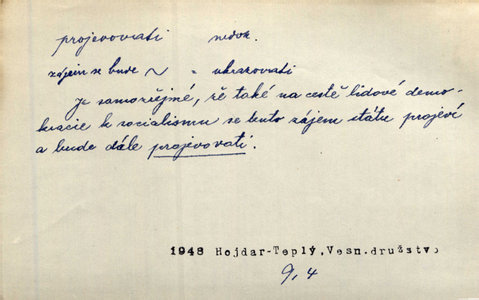 projevovati nedok.
zájem se bude ~ = ukazovati
Je samozřejmé, že také na cestě lidové demo-
kracie k socialismu se tento zájem státu projeví
a bude dále projevovati.
1948 Hojdar-Teplý,Vesn.družstvo
9,4